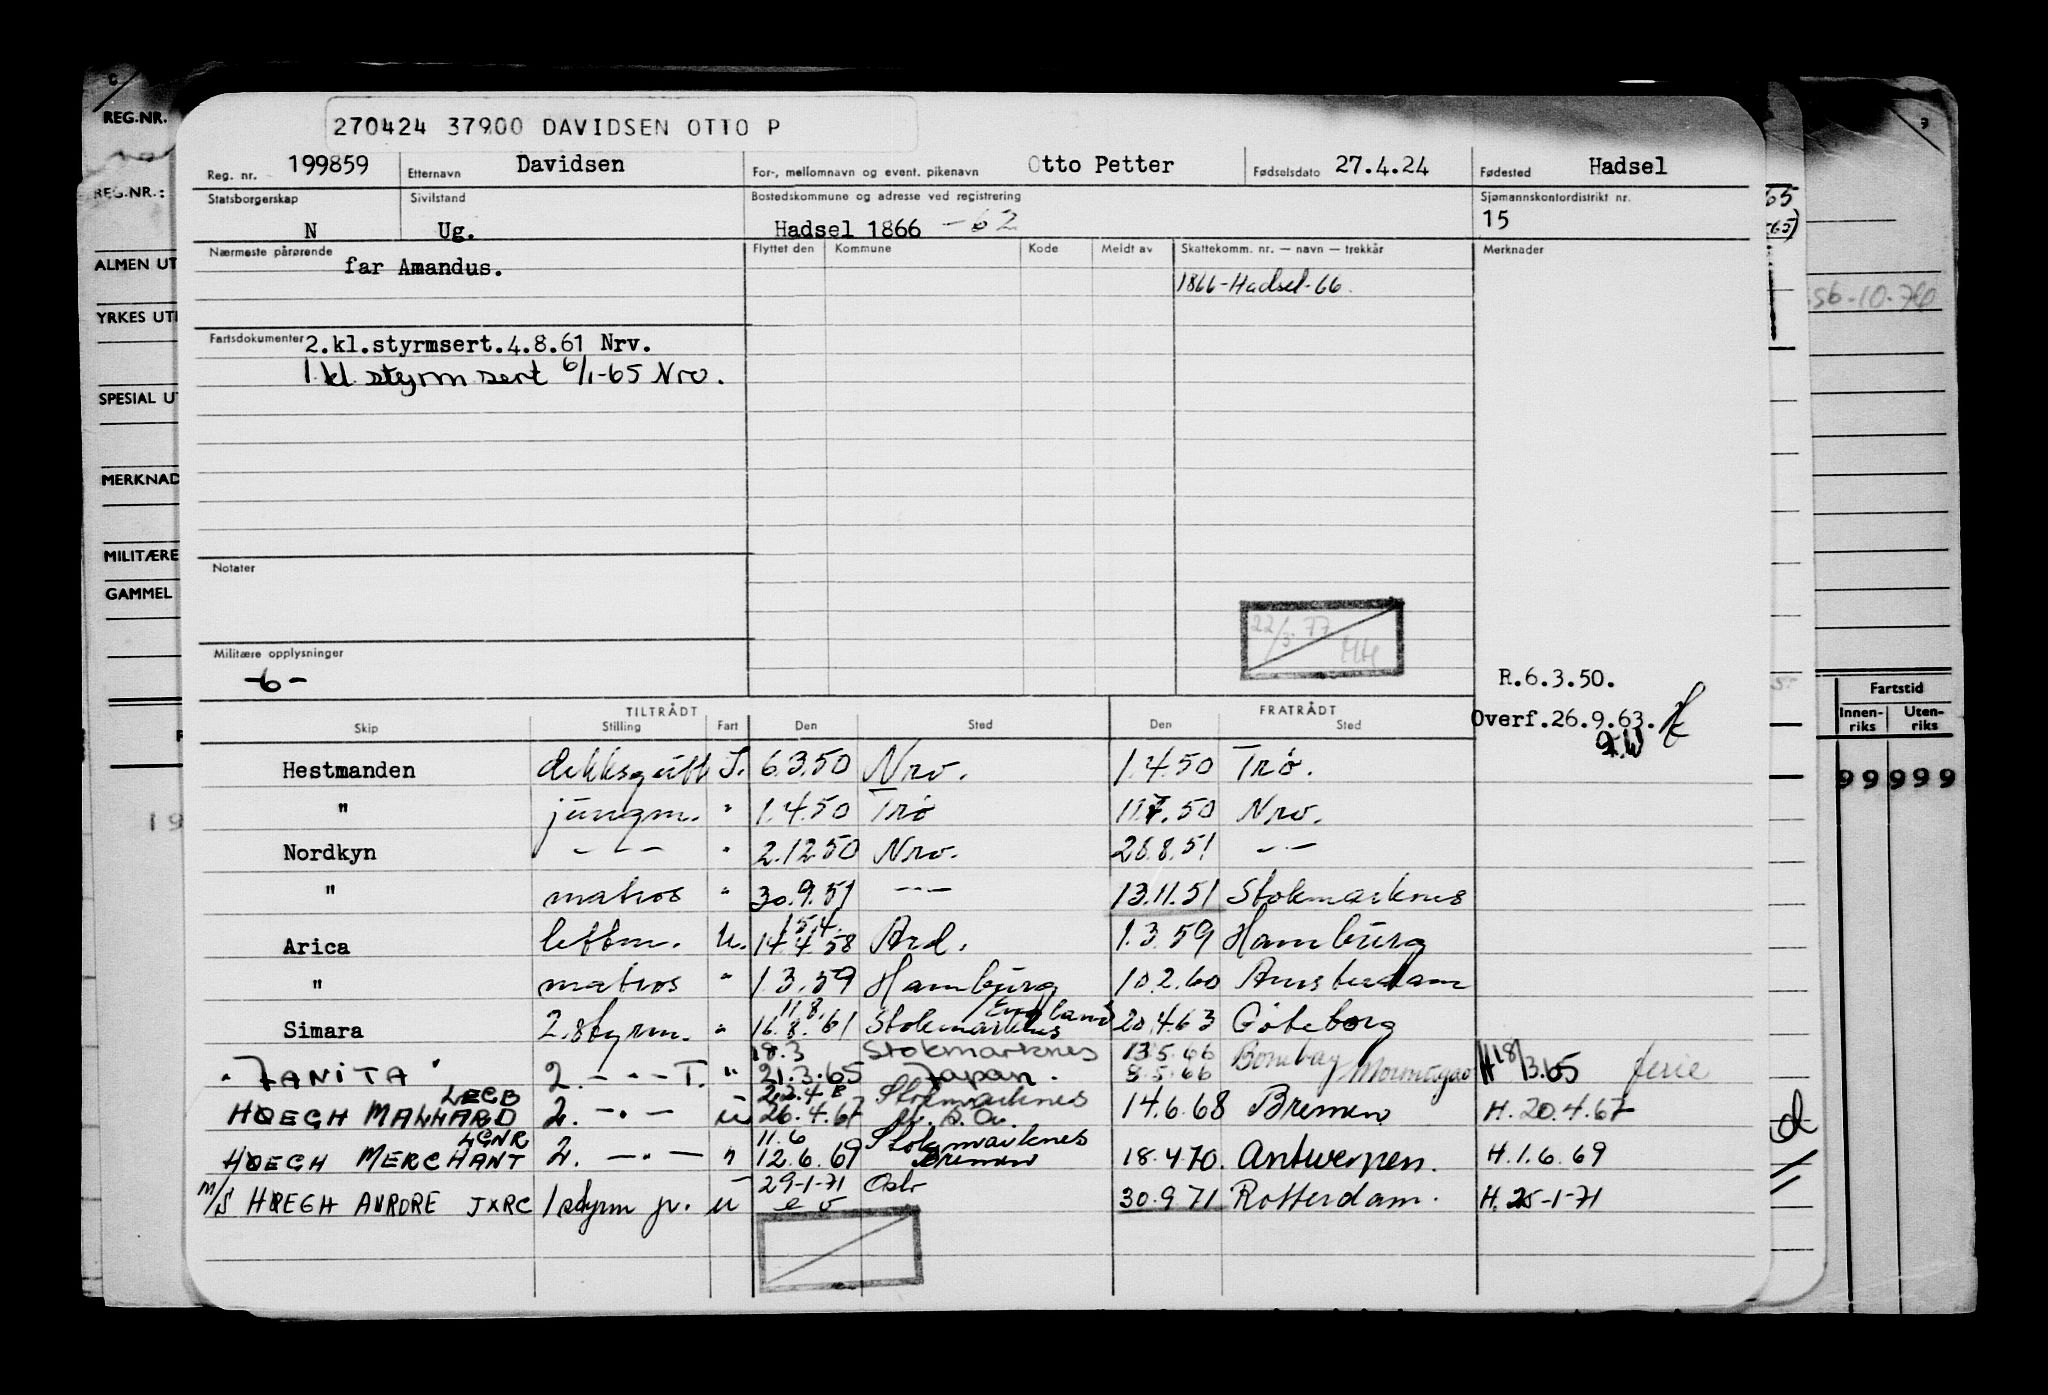 270424 37900 DAVIDSEN OTTO P
Reg. nr. 199859 Etternavn Davidsen For-, mellomnavn og event. pikenavn Otto Petter Fødselsdato 27.4.24 Fødested Hadsel
Statsborgerskap N Sivilstand Ug. Bostedskommune og adresse ved registrering Hadsel 1866 -62 Sjømannskontordistrikt nr. 15
Nærmeste pårørende far Amandus. Flyttet den Kommune Kode Meldt av Skattekomm. nr. — navn — trekkår Merknader
1866-Hadsel-66.
Fartsdokumenter 2.kl.styrmsert.4.8.61 Nrv.
1 kl. styrm sert 6/1-65 Nrv.
Notater
22/3 77
Militære opplysninger
-6-
R.6.3.50.
Overf.26.9.63.
TILTRÅDT FRATRÅDT
Skip Stilling Fart Den Sted Den Sted
Hestmanden dekksgutt I. 6.3.50 Nrv. 1.4.50 Trø.
" jungm. " 1.4.50 Trø 11.7.50 Nrv.
Nordkyn - - - " 2.12.50 Nrv. 28.8.51 - -
" matros " 30.9.51 - - - 13.11.51 Stokmarknes
15.4.
Arica lettm. U. 14.4.58 Ard. 1.3.59 Hamburg
" matros " 1.3.59 Hamburg 10.2.60 Amsterdam
11.8. England
Simara 2. styrm. " 16.8.61 Stokmarknes 20.4.63 Göteborg
18.3 Stokmarknes 13.5.66 Bombay
" JANITA " 2. - " - T. " 21.3.65 Japan. 8.5.66 Mormugao H 18/3.65 ferie
LECB 22.4 Stokmarknes
HØEGH MALLARD 2. - " - u 26.4.67 U.S.A. 14.6.68 Bremen H. 20.4.67
LGNR 11.6 Stokmarknes
HØEGH MERCHANT 2. - " - " 12.6.69 Bremen 18.4.70. Antwerpen. H.1.6.69
29-1-71 Oslo
M/S HØEGH AURORE JXRC 1 styrm jr. u 30.9.71 Rotterdam. H. 25-1-71
REG.NR.
REG.NR.:
ALMEN UT
YRKES UT
SPESIAL UT
MERKNAD
MILITÆRE
GAMMEL
19
65
56-10-76
Fartstid
Innen-riks Uten-riks
9 9 9 9 9
d